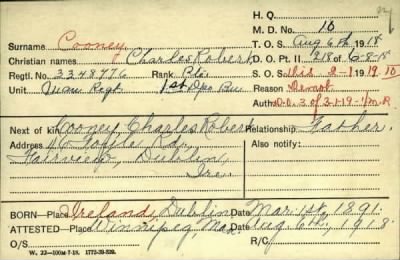 H. Q.
M. D. No. 10
Surname Cooney
T. O. S. Aug 6th 1918
Christian names Charles Robert
D. O. Pt. II 218 of 6-8-18
Regtl. No. 3348776 Rank Pte.
S. O. S. Dis. 2-1-19 10
Unit Man Regt 1st Dpo Bn
Reason Demob
Auth. D.O. 3 of 3-1-19
Next of kin Cooney, Charles Robert Relationship Father.
Address Rd.,
Also notify:
Fairview, Dublin,
Ire.
BORN—Place Ireland, Dublin Date Mar. 1st, 1891.
ATTESTED—Place Winnipeg, Man. Date Aug. 6th, 1918
O/S R/C
W. 22—100M-7-18. 1772-39-839.